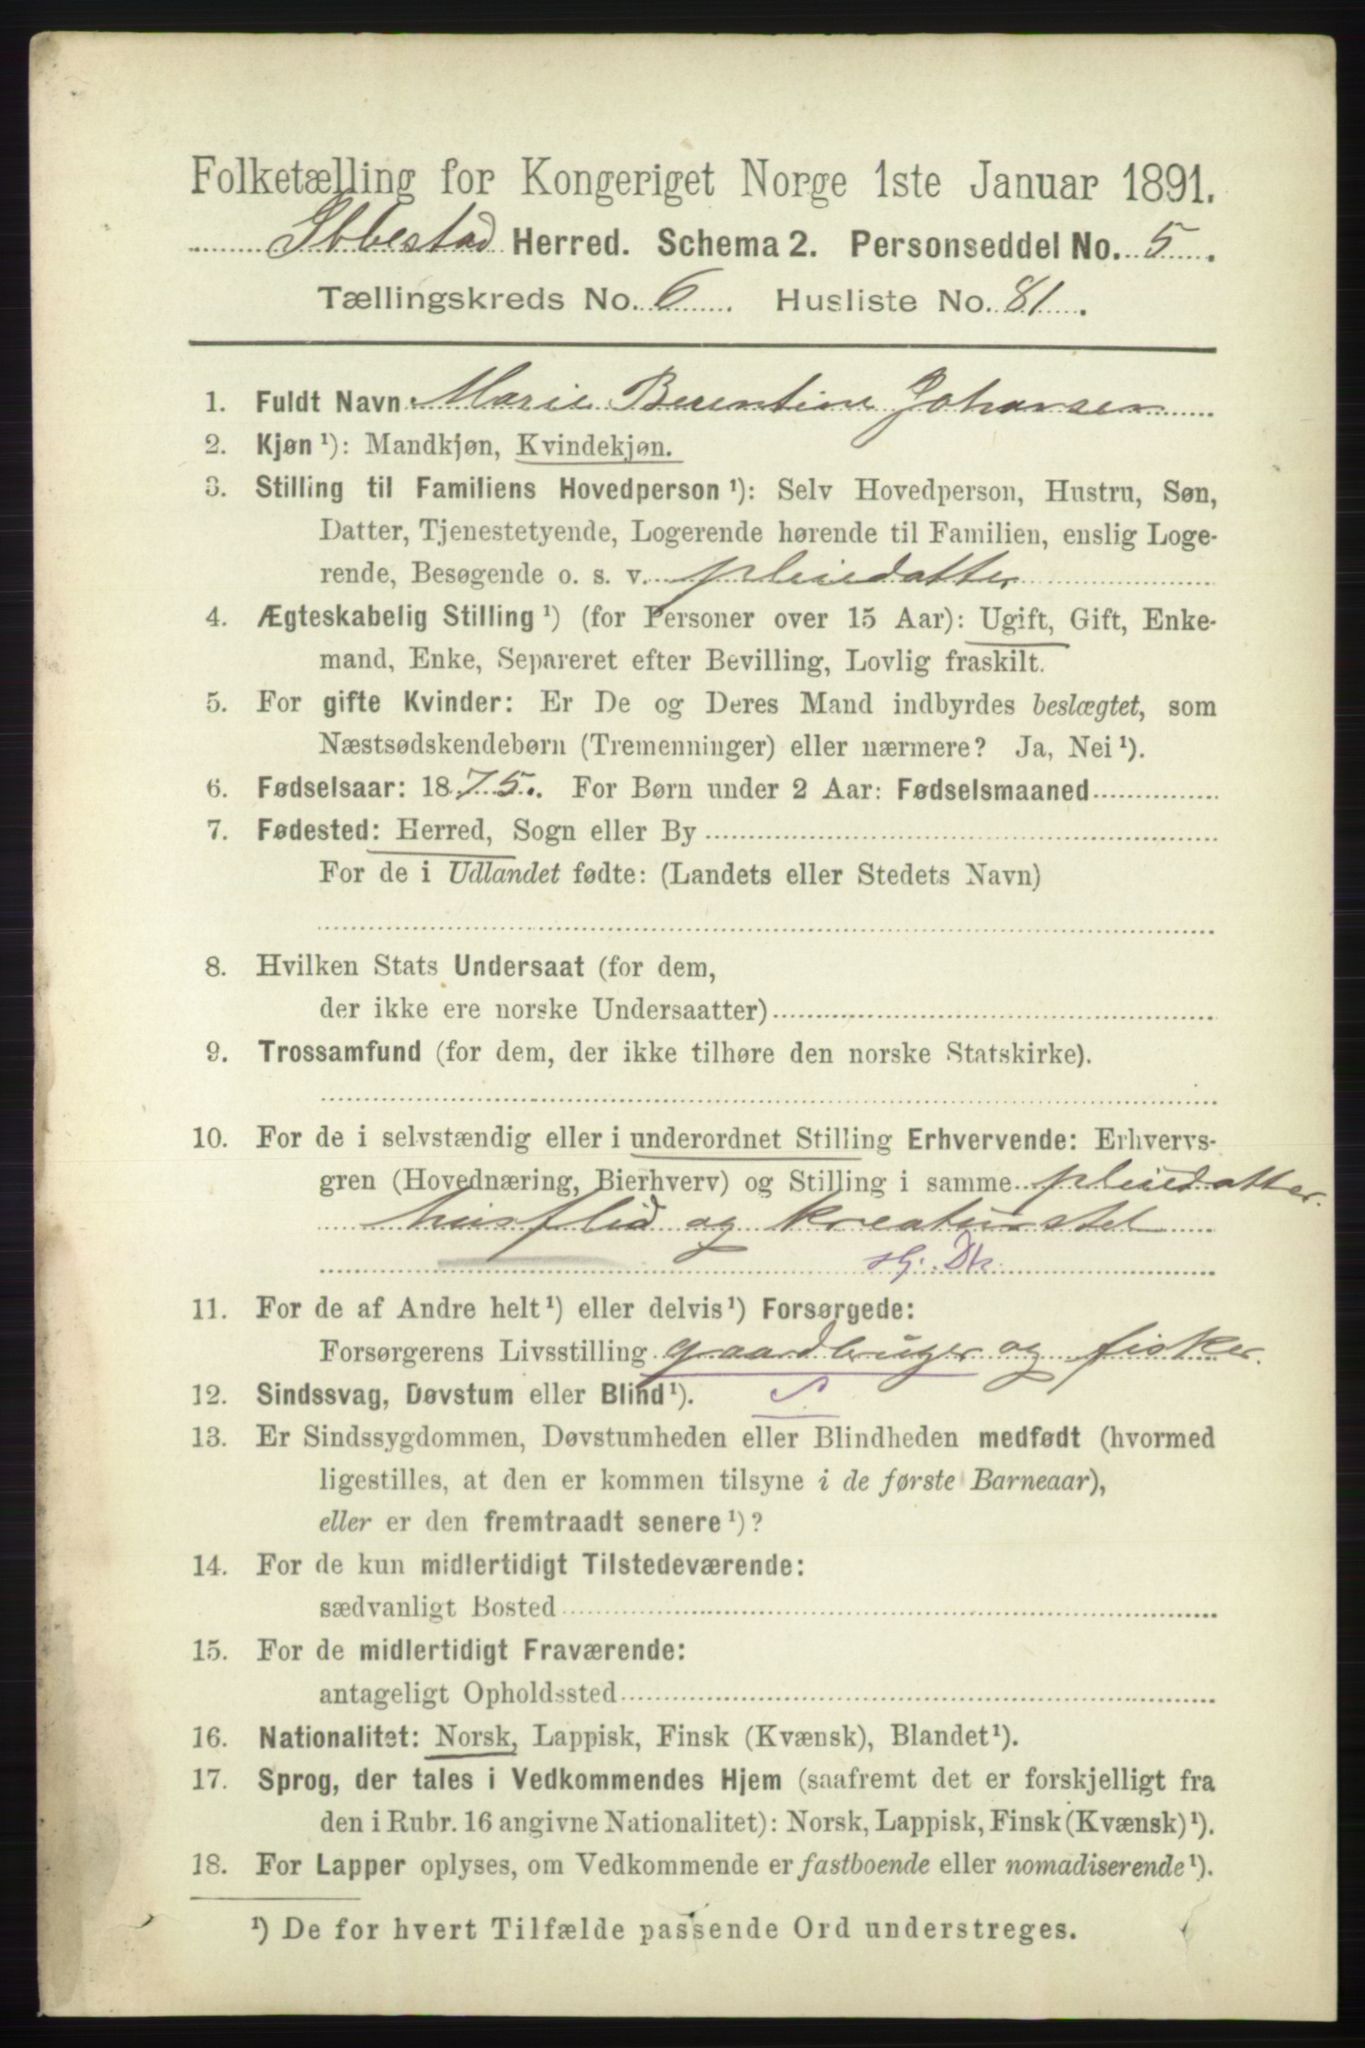 Folketælling for Kongeriget Norge 1ste Januar 1891.
Ibbestad Herred. Schema 2. Personseddel No. 5.
Tællingskreds No. 6. Husliste No. 81.
1. Fuldt Navn Marie Berentine Johansen
2. Kjøn ¹): Mandkjøn, Kvindekjøn.
3. Stilling til Familiens Hovedperson ¹): Selv Hovedperson, Hustru, Søn,
Datter, Tjenestetyende, Logerende hørende til Familien, enslig Loge-
rende, Besøgende o. s. v. pleiedatter
4. Ægteskabelig Stilling ¹) (for Personer over 15 Aar): Ugift, Gift, Enke-
mand, Enke, Separeret efter Bevilling, Lovlig fraskilt.
5. For gifte Kvinder: Er De og Deres Mand indbyrdes beslægtet, som
Næstsødskendebørn (Tremenninger) eller nærmere? Ja, Nei ¹).
6. Fødselsaar: 1875. For Børn under 2 Aar: Fødselsmaaned
7. Fødested: Herred, Sogn eller By
For de i Udlandet fødte: (Landets eller Stedets Navn)
8. Hvilken Stats Undersaat (for dem,
der ikke ere norske Undersaatter)
9. Trossamfund (for dem, der ikke tilhøre den norske Statskirke).
10. For de i selvstændig eller i underordnet Stilling Erhvervende: Erhvervs-
gren (Hovednæring, Bierhverv) og Stilling i samme pleiedatter.
husflid og kreaturstel
11. For de af Andre helt ¹) eller delvis ¹) Forsørgede:
Forsørgerens Livsstilling gaardbruger og fisker.
12. Sindssvag, Døvstum eller Blind ¹). S
13. Er Sindssygdommen, Døvstumheden eller Blindheden medfødt (hvormed
ligestilles, at den er kommen tilsyne i de første Barneaar),
eller er den fremtraadt senere ¹)?
14. For de kun midlertidigt Tilstedeværende:
sædvanligt Bosted
15. For de midlertidigt Fraværende:
antageligt Opholdssted
16. Nationalitet: Norsk, Lappisk, Finsk (Kvænsk), Blandet ¹).
17. Sprog, der tales i Vedkommendes Hjem (saafremt det er forskjelligt fra
den i Rubr. 16 angivne Nationalitet): Norsk, Lappisk, Finsk (Kvænsk) ¹).
18. For Lapper oplyses, om Vedkommende er fastboende eller nomadiserende ¹).
¹) De for hvert Tilfælde passende Ord understreges.